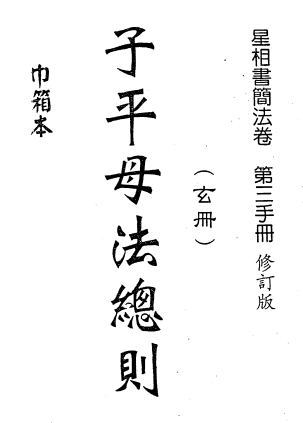 星相書簡法卷　第三手冊 修訂版
（玄冊）
子平母法總則
巾箱本